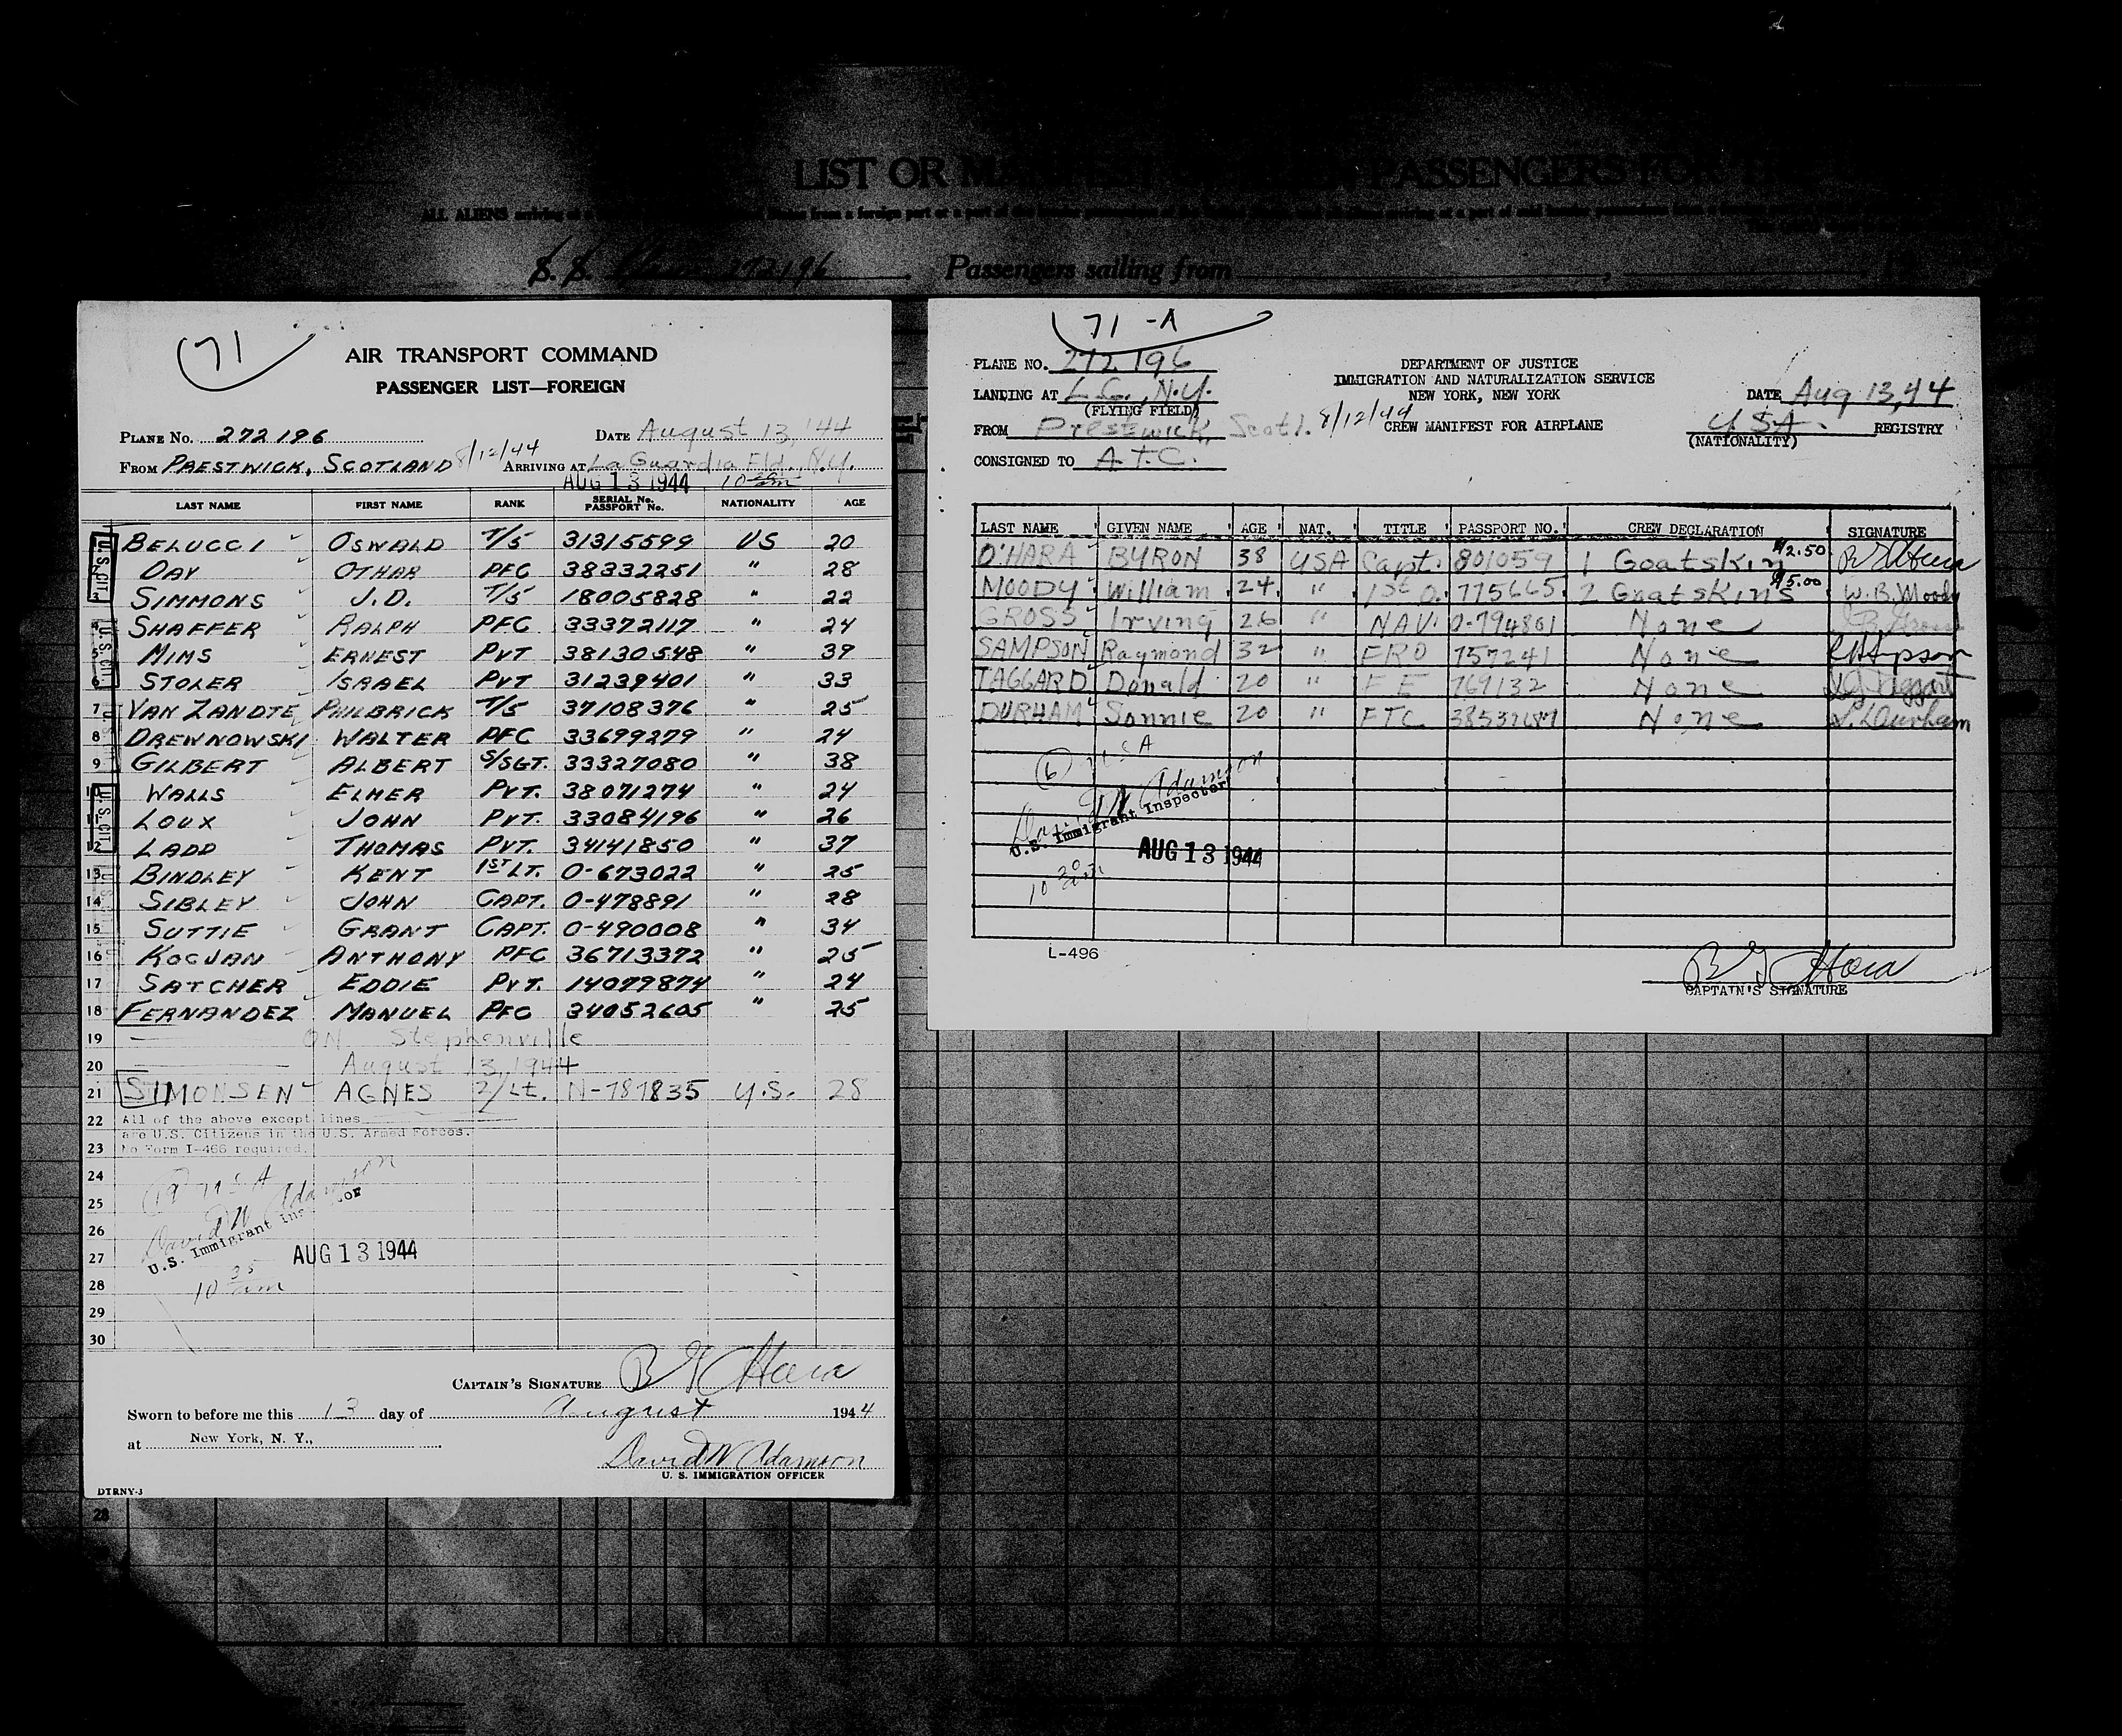 LIST OR PASSENGERS FOR
ALL ALIENS arriving at a from a foreign port or a port of
S. S. Plane 272196 Passengers sailing from
71
AIR TRANSPORT COMMAND
PASSENGER LIST—FOREIGN
PLANE No. 272196 DATE August 13, '44
FROM PRESTWICK, SCOTLAND 8/12/44 ARRIVING AT La Guardia Fld., N.Y.
AUG 13 1944 10 30 am
LAST NAME FIRST NAME RANK SERIAL No. PASSPORT No. NATIONALITY AGE
1 BELUCCI OSWALD T/5 31315599 US 20
2 DAY OTHAR PFC 38332251 " 28
3 SIMMONS J.D. T/5 18005828 " 22
4 SHAFFER RALPH PFC 33372117 " 24
5 MIMS ERNEST PVT 38130548 " 39
6 STOLER ISRAEL PVT 31239401 " 33
7 VAN ZANDTE PHILBRICK T/5 37108376 " 25
8 DREWNOWSKI WALTER PFC 33699279 " 24
9 GILBERT ALBERT S/SGT. 33327080 " 38
10 WALLS ELMER PVT. 38071274 " 24
11 LOUX JOHN PVT. 33084196 " 26
12 LADD THOMAS PVT. 34141850 " 37
13 BINDLEY KENT 1ST LT. O-673022 " 25
14 SIBLEY JOHN CAPT. O-478891 " 28
15 SUTTIE GRANT CAPT. O-490008 " 34
16 KOCJAN ANTHONY PFC 36713372 " 25
17 SATCHER EDDIE PVT. 14079874 " 24
18 FERNANDEZ MANUEL PFC 34052605 " 25
19 ON Stephenville
20 August 13, 1944
21 SIMONSEN AGNES 2/Lt. N-787835 U.S. 28
22 All of the above except lines
are U.S. Citizens in the U.S. Armed Forces.
23 No Form I-466 required.
24 (19) USA
25
26 David W Adamson
27 U.S. Immigrant Inspector AUG 13 1944
28 10 35 am
29
30
CAPTAIN'S SIGNATURE B G O'Hara
Sworn to before me this 13 day of August 1944
at New York, N. Y.,
David W Adamson
U. S. IMMIGRATION OFFICER
DTRNY-3
28
71 -A
PLANE NO. 272196 DEPARTMENT OF JUSTICE
IMMIGRATION AND NATURALIZATION SERVICE
LANDING AT L.G., N.Y. NEW YORK, NEW YORK DATE Aug 13, 44
(FLYING FIELD)
FROM Prestwick, Scotl. 8/12/44 CREW MANIFEST FOR AIRPLANE USA. REGISTRY
(NATIONALITY)
CONSIGNED TO A.T.C.
LAST NAME GIVEN NAME AGE NAT. TITLE PASSPORT NO. CREW DECLARATION SIGNATURE
O'HARA BYRON 38 USA Capt. 801059 1 Goatskin $2.50 B G O'Hara
MOODY William 24 " 1st O. 775665 2 Goatskins $5.00 W. B. Moody
GROSS Irving 26 " NAV. O-794801 None
SAMPSON Raymond 32 " FRO 757241 None
TAGGARD Donald 20 " FE 769132 None
DURHAM Sonnie 20 " FTC 38537687 None S. Durham
(6) USA
David W Adamson
U.S. Immigrant Inspector
AUG 13 1944
10 30 am
L-496
B G O'Hara
CAPTAIN'S SIGNATURE